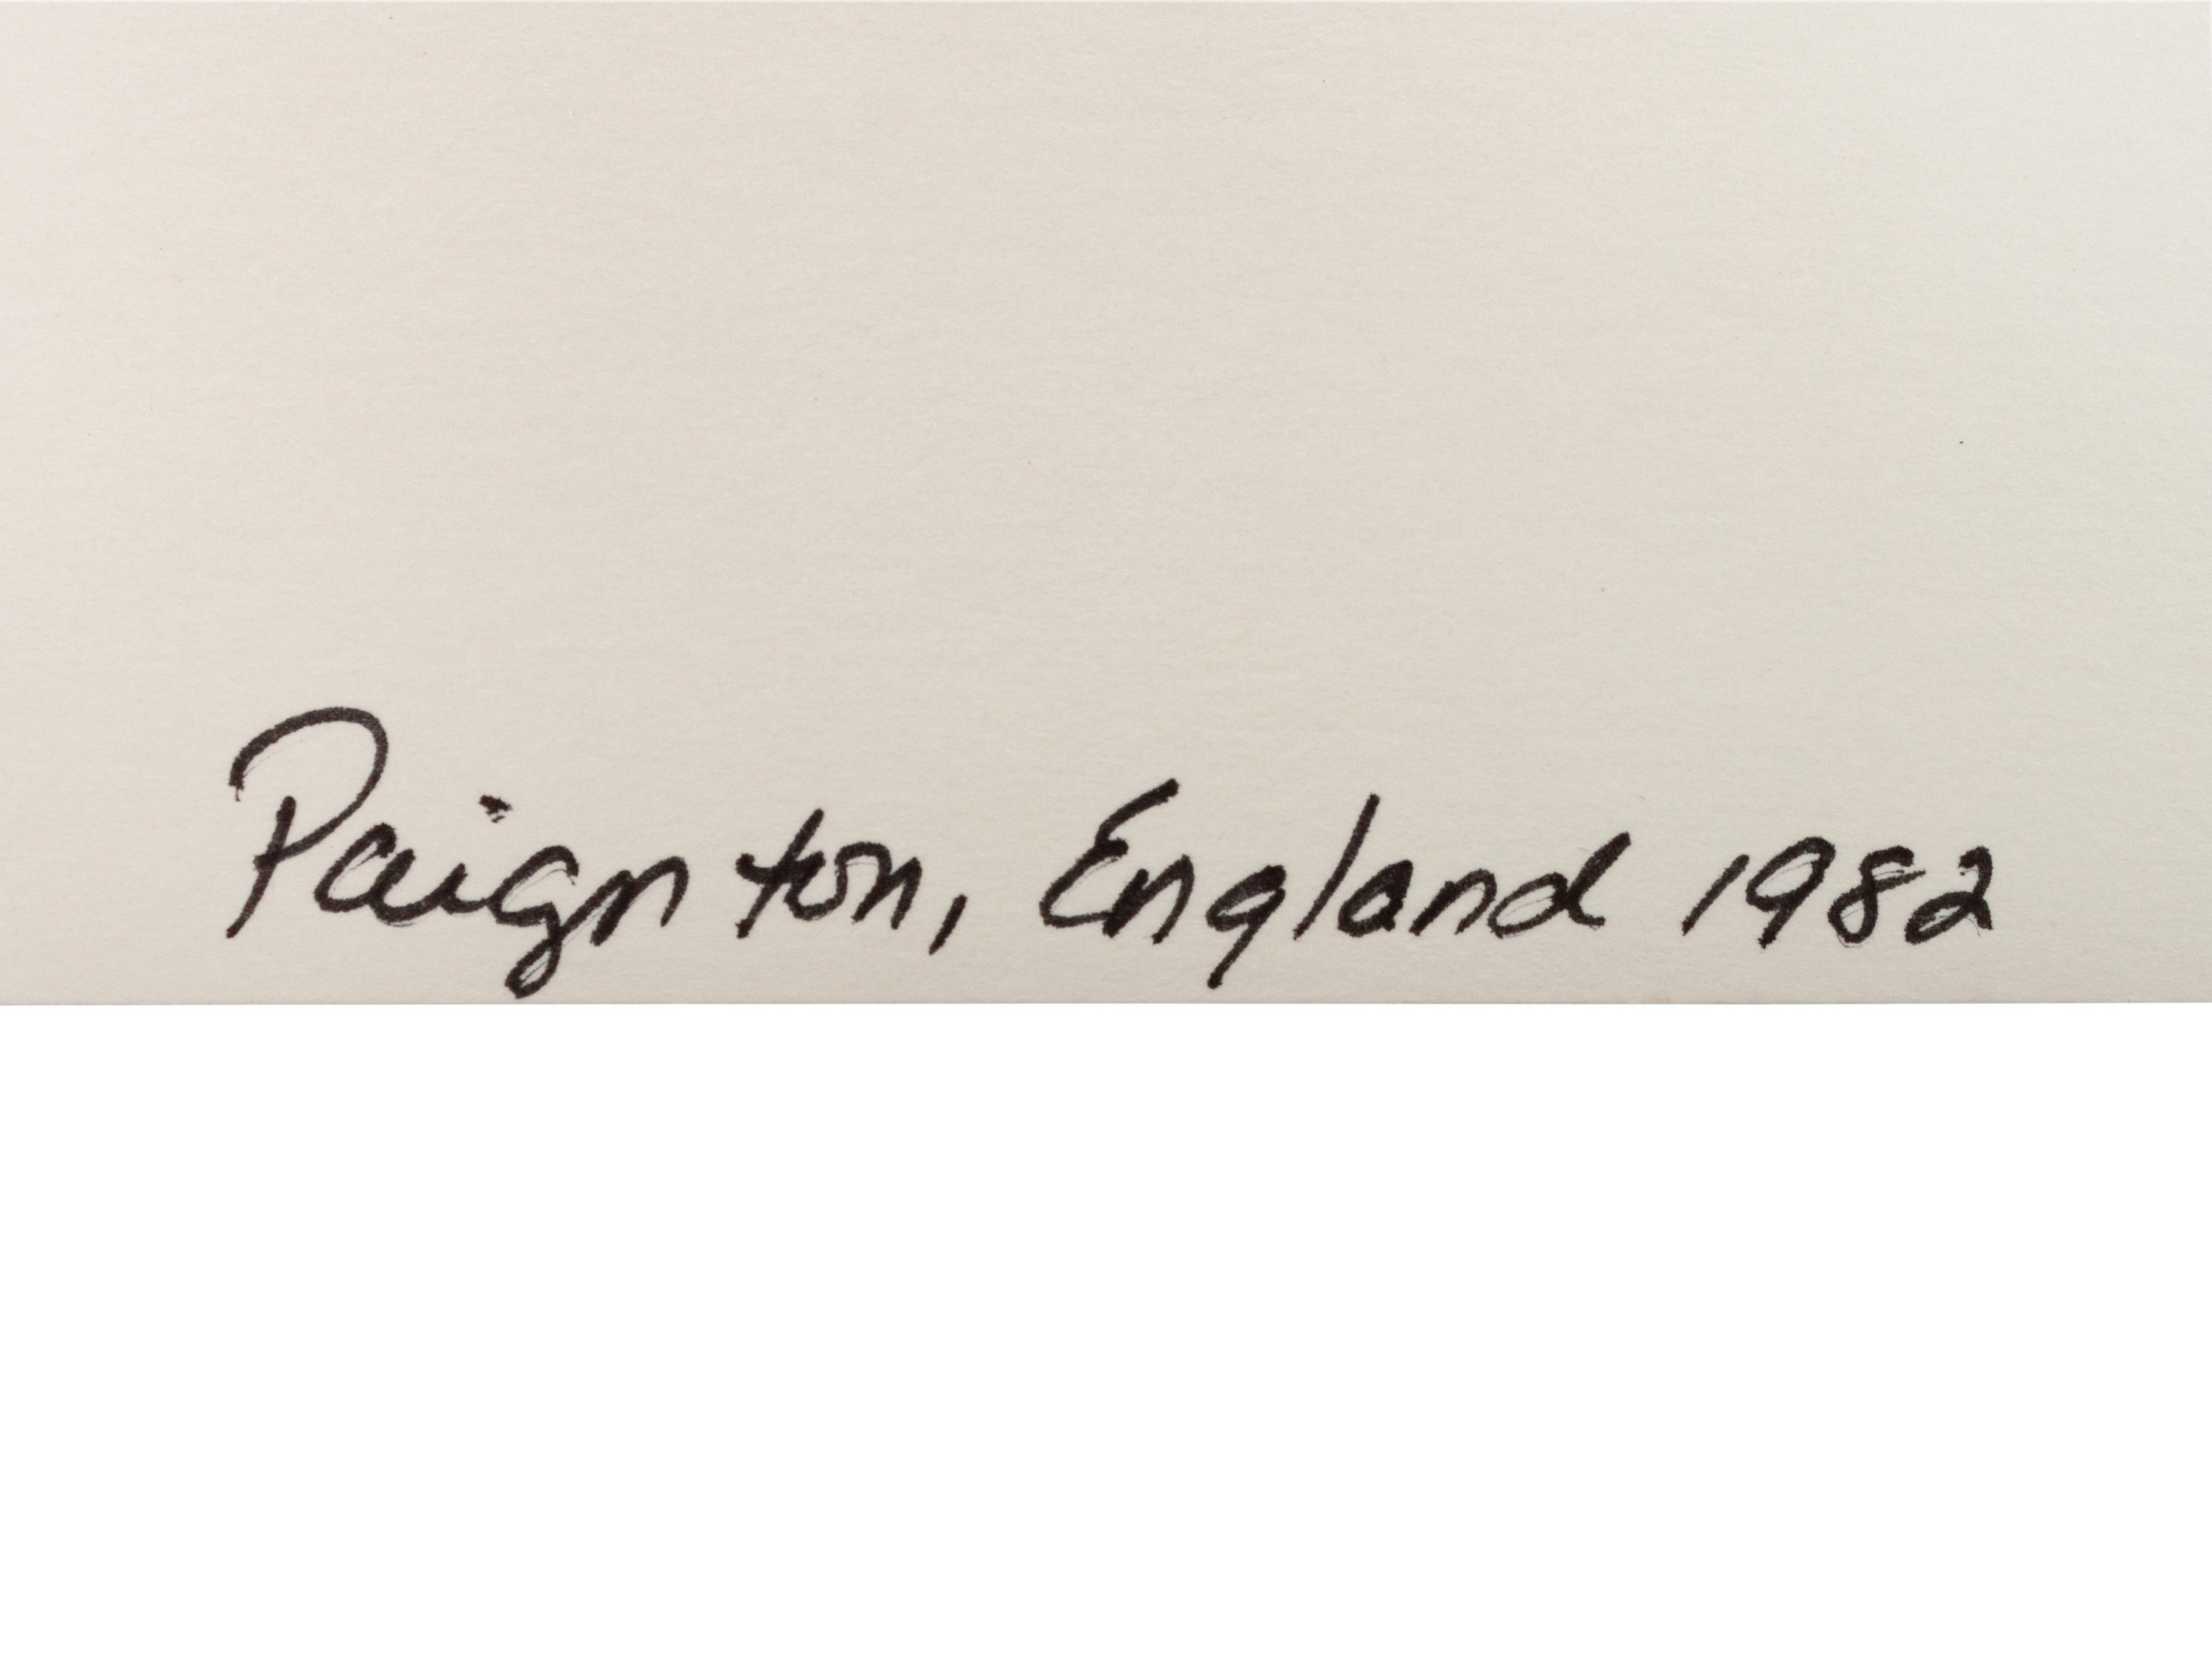 Paignton, England 1982